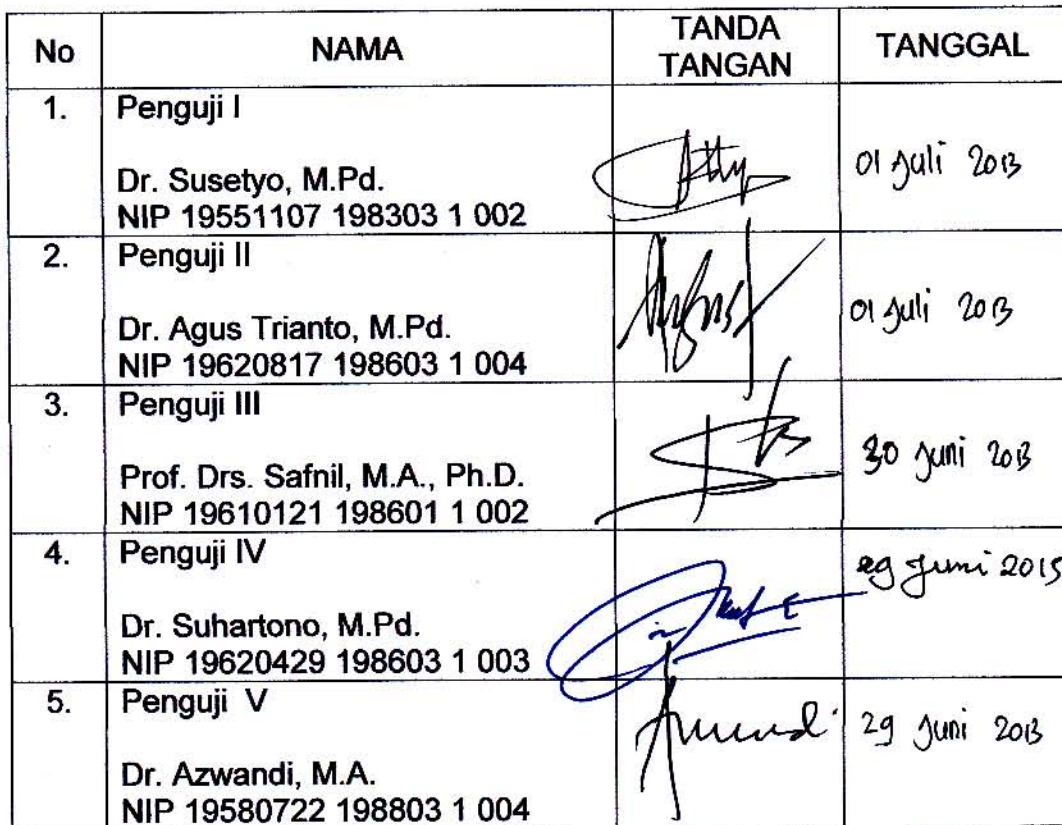 No NAMA TANDA TANGAN TANGGAL
1. Penguji I
Dr. Susetyo, M.Pd.
NIP 19551107 198303 1 002
01 Juli 2013
2. Penguji II
Dr. Agus Trianto, M.Pd.
NIP 19620817 198603 1 004
01 Juli 2013
3. Penguji III
Prof. Drs. Safnil, M.A., Ph.D.
NIP 19610121 198601 1 002
30 Juni 2013
4. Penguji IV
Dr. Suhartono, M.Pd.
NIP 19620429 198603 1 003
29 Juni 2013
5. Penguji V
Dr. Azwandi, M.A.
NIP 19580722 198803 1 004
29 Juni 2013